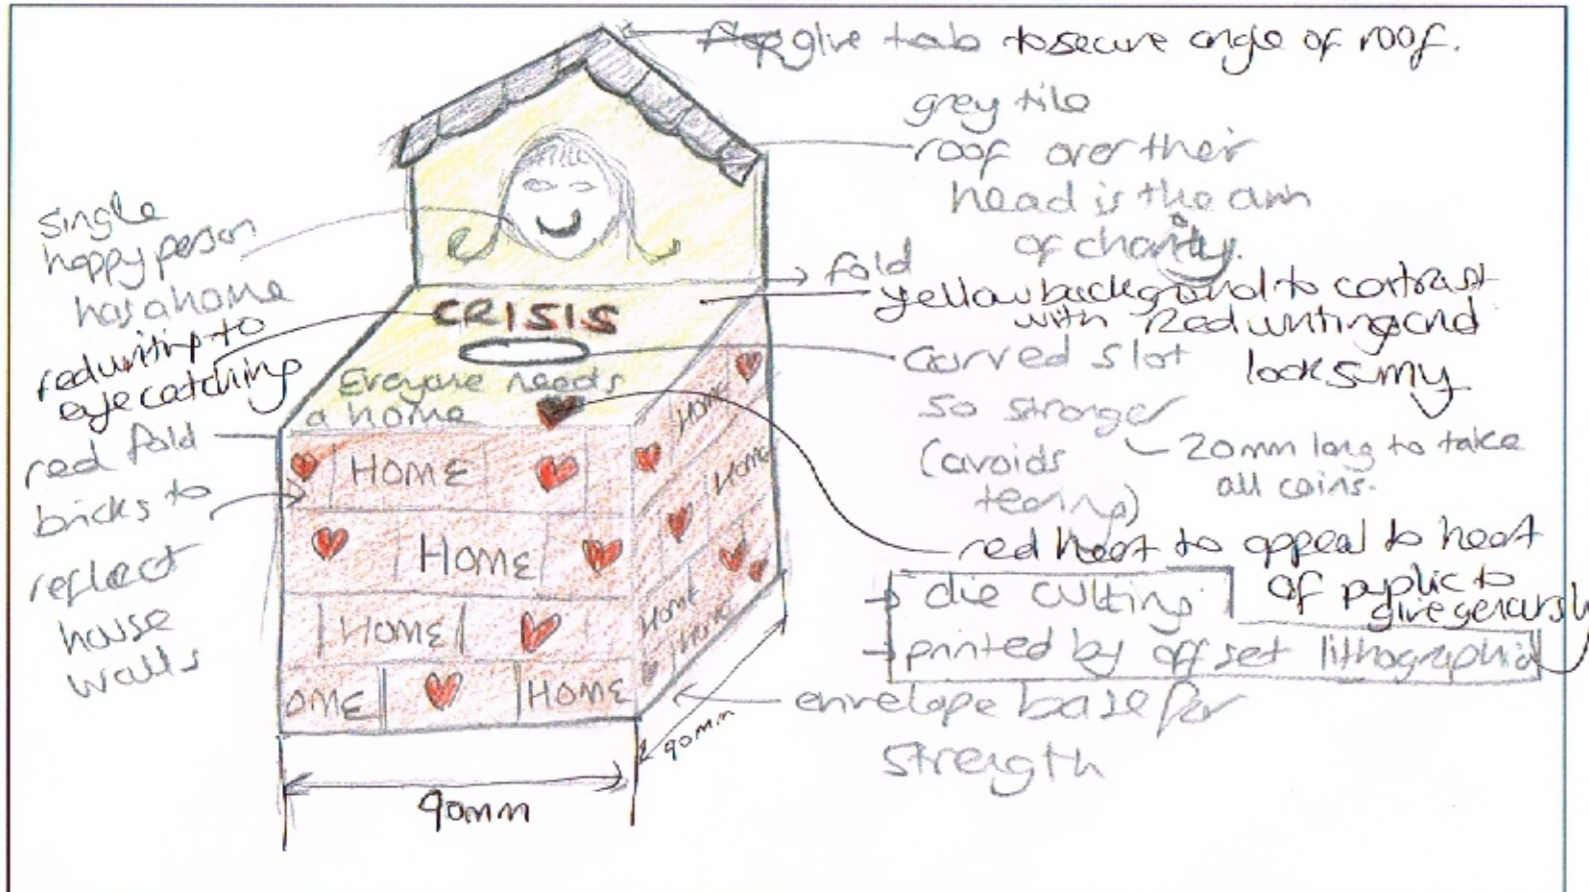 glue tab to secure angle of roof.
grey tile
roof over their
head is the aim
of charity.
single
happy person
has a home
fold
yellow background to contrast
with Red writing and
look sunny
CRISIS
red writing to
eye catching
curved slot
so stronger
(avoids
tearing)
20mm long to take
all coins.
Everyone needs
a home
red fold
bricks to
reflect
house
walls
HOME
HOME
HOME
OME
HOME
HOME
HOME
HOME
HOME
red heart to appeal to heart
of public to
give generously
→ die cutting
→ printed by offset lithographic
envelope base for
strength
90mm
90mm